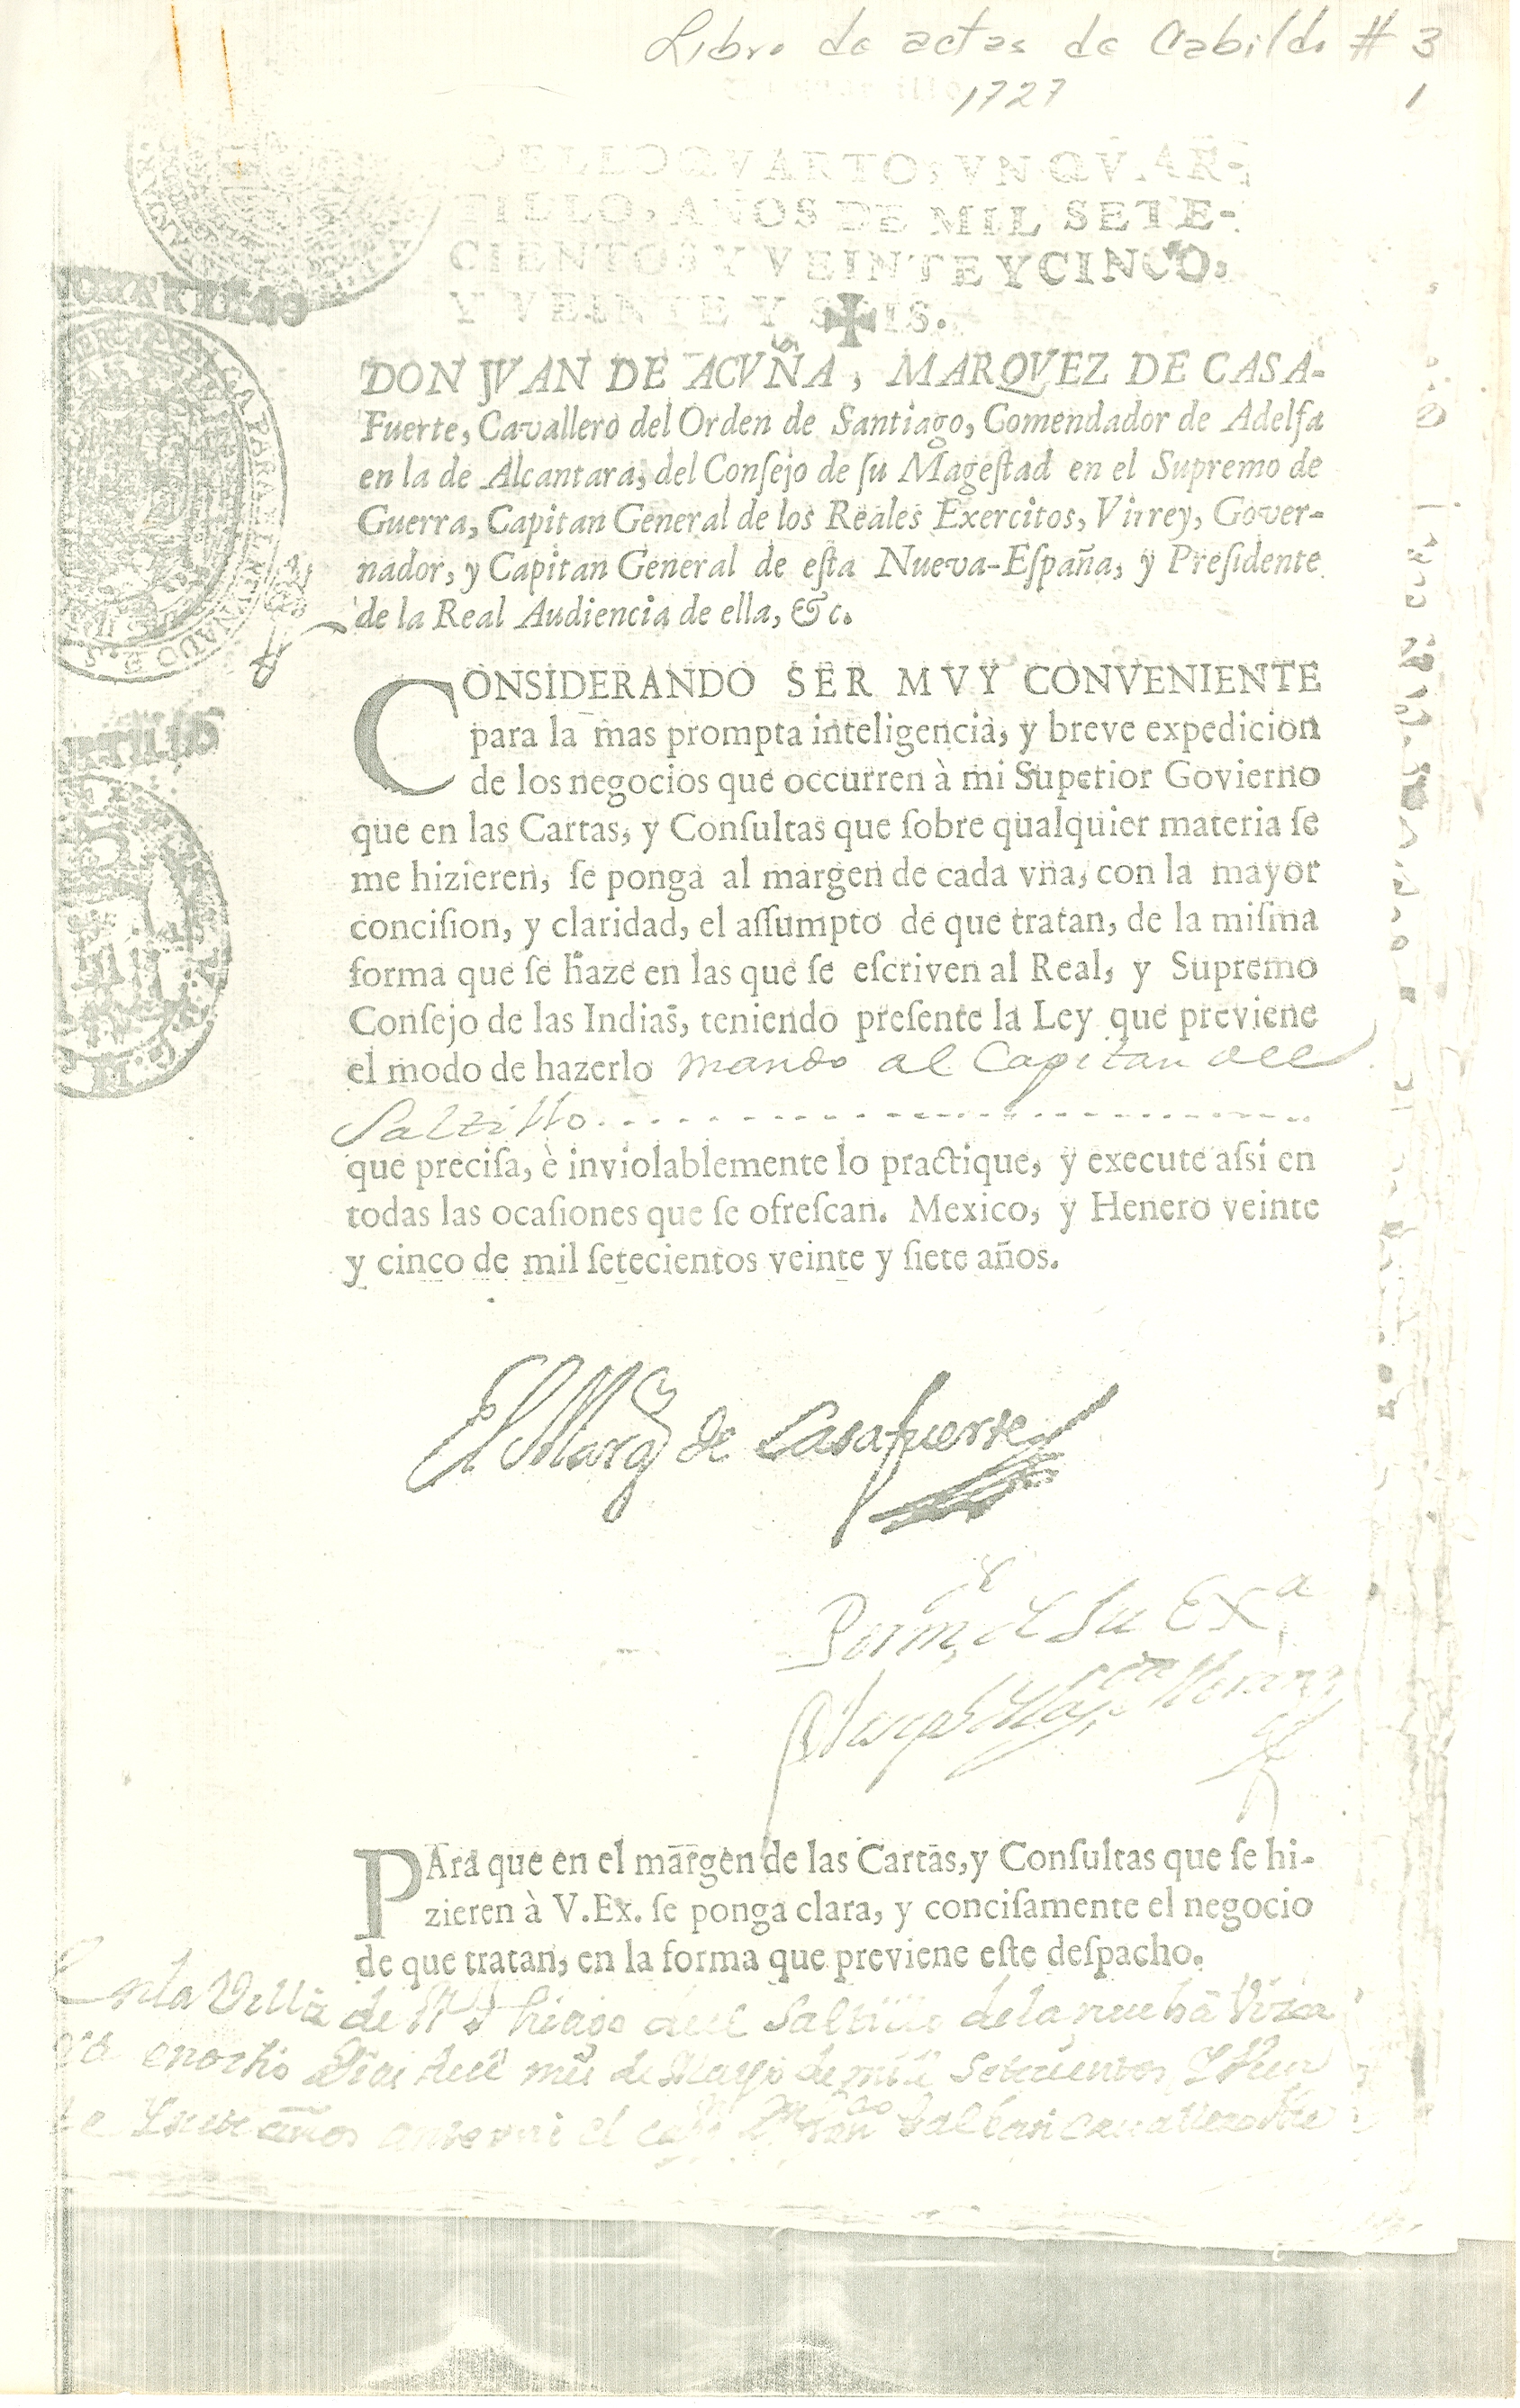 Libro de actas de Cabildo # 3
1727 1
SELLO QVARTO, VN QVAR-
TILLO, AÑOS DE MIL SETE-
CIENTOS Y VEINTE Y CINCO,
Y VEINTE Y SEIS.
DON JVAN DE ACVÑA, MARQVEZ DE CASA-
Fuerte, Cavallero del Orden de Santiago, Comendador de Adelfa
en la de Alcantara, del Conſejo de ſu Mageſtad en el Supremo de
Guerra, Capitan General de los Reales Exercitos, Virrey, Gover-
nador, y Capitan General de eſta Nueva-Eſpaña, ÿ Preſidente
de la Real Audiencia de ella, &c.
CONSIDERANDO SER MVY CONVENIENTE
para la mas prompta inteligencia, y breve expedicion
de los negocios que occurren à mi Superior Govierno
que en las Cartas, y Conſultas que ſobre qualquier materia ſe
me hizieren, ſe ponga al margen de cada vna, con la mayor
conciſion, y claridad, el aſſumpto de que tratan, de la miſma
forma que ſe haze en las que ſe eſcriven al Real, y Supremo
Conſejo de las Indias, teniendo preſente la Ley que previene
el modo de hazerlo mando al Capitan del
Saltillo
que preciſa, è inviolablemente lo practique, ÿ execute aſsi en
todas las ocaſiones que ſe ofreſcan. Mexico, y Henero veinte
y cinco de mil ſetecientos veinte y ſiete años.
El Marqs de Casafuerte
Por mdo de Su Exa
PAra que en el margen de las Cartas, y Conſultas que ſe hi-
zieren à V.Ex. ſe ponga clara, y conciſamente el negocio
de que tratan, en la forma que previene eſte deſpacho.
En la Villa de Sthiago del Saltillo de la nueba Vizca
ya en ocho Dias del mes de Mayo de mil Setecientos Y Vein
te Y siete años ante mi el